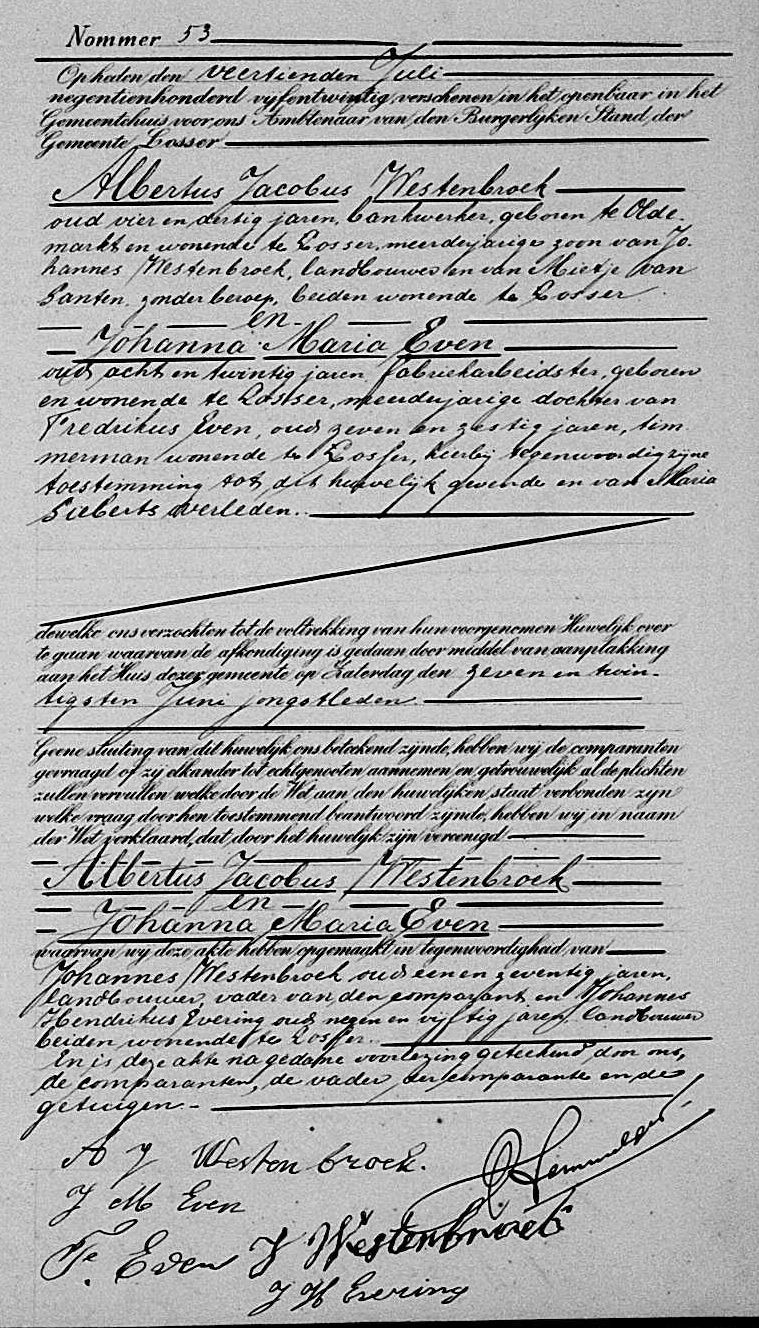 Nommer 53
Op heden den veertienden Juli
negentienhonderd vijfentwintig, verschenen in het openbaar in het
Gemeentehuis voor ons Ambtenaar van den Burgerlijken Stand, der
Gemeente Losser
Albertus Jacobus Westenbroek
oud vier en dertig jaren, bankwerker, geboren te Olde-
markt en wonende te Losser, meerderjarige zoon van Jo-
hannes Westenbroek, landbouwer en van Mietje van
Santen, zonder beroep, beiden wonende te Losser
en
Johanna Maria Even
oud acht en twintig jaren fabriekarbeidster, geboren
en wonende te Losser, meerderjarige dochter van
Fredrikus Even, oud zeven en zestig jaren, tim-
merman wonende te Losser, hierbij tegenwoordig zijne
toestemming tot dit huwelijk gevende en van Maria
Sieberts overleden.
dewelke ons verzochten tot de voltrekking van hun voorgenomen Huwelijk over
te gaan waarvan de afkondiging is gedaan door middel van aanplakking
aan het Huis dezer gemeente op Zaterdag den zeven en twin-
tigsten Juni jongstleden.
Geene stuiting van dit huwelijk ons beteekend zijnde, hebben wij de comparanten
gevraagd of zij elkander tot echtgenooten aannemen en getrouwelijk al de plichten
zullen vervullen welke door de Wet aan den huwelijken staat verbonden zijn
welke vraag door hen toestemmend beantwoord zijnde, hebben wij in naam
der Wet verklaard, dat door het huwelijk zijn vereenigd
Albertus Jacobus Westenbroek
en
Johanna Maria Even
waarvan wij deze akte hebben opgemaakt in tegenwoordigheid van
Johannes Westenbroek oud een en zeventig jaren,
landbouwer, vader van den comparant en Johannes
Hendrikus Evering oud negen en vijftig jaren, landbouwer
beiden wonende te Losser.
En is deze akte na gedane voorlezing geteekend door ons,
de comparanten, de vader der comparante en de
getuigen.
A J Westenbroek.
J M Even
Fe. Even J Westenbroek
J H Evering